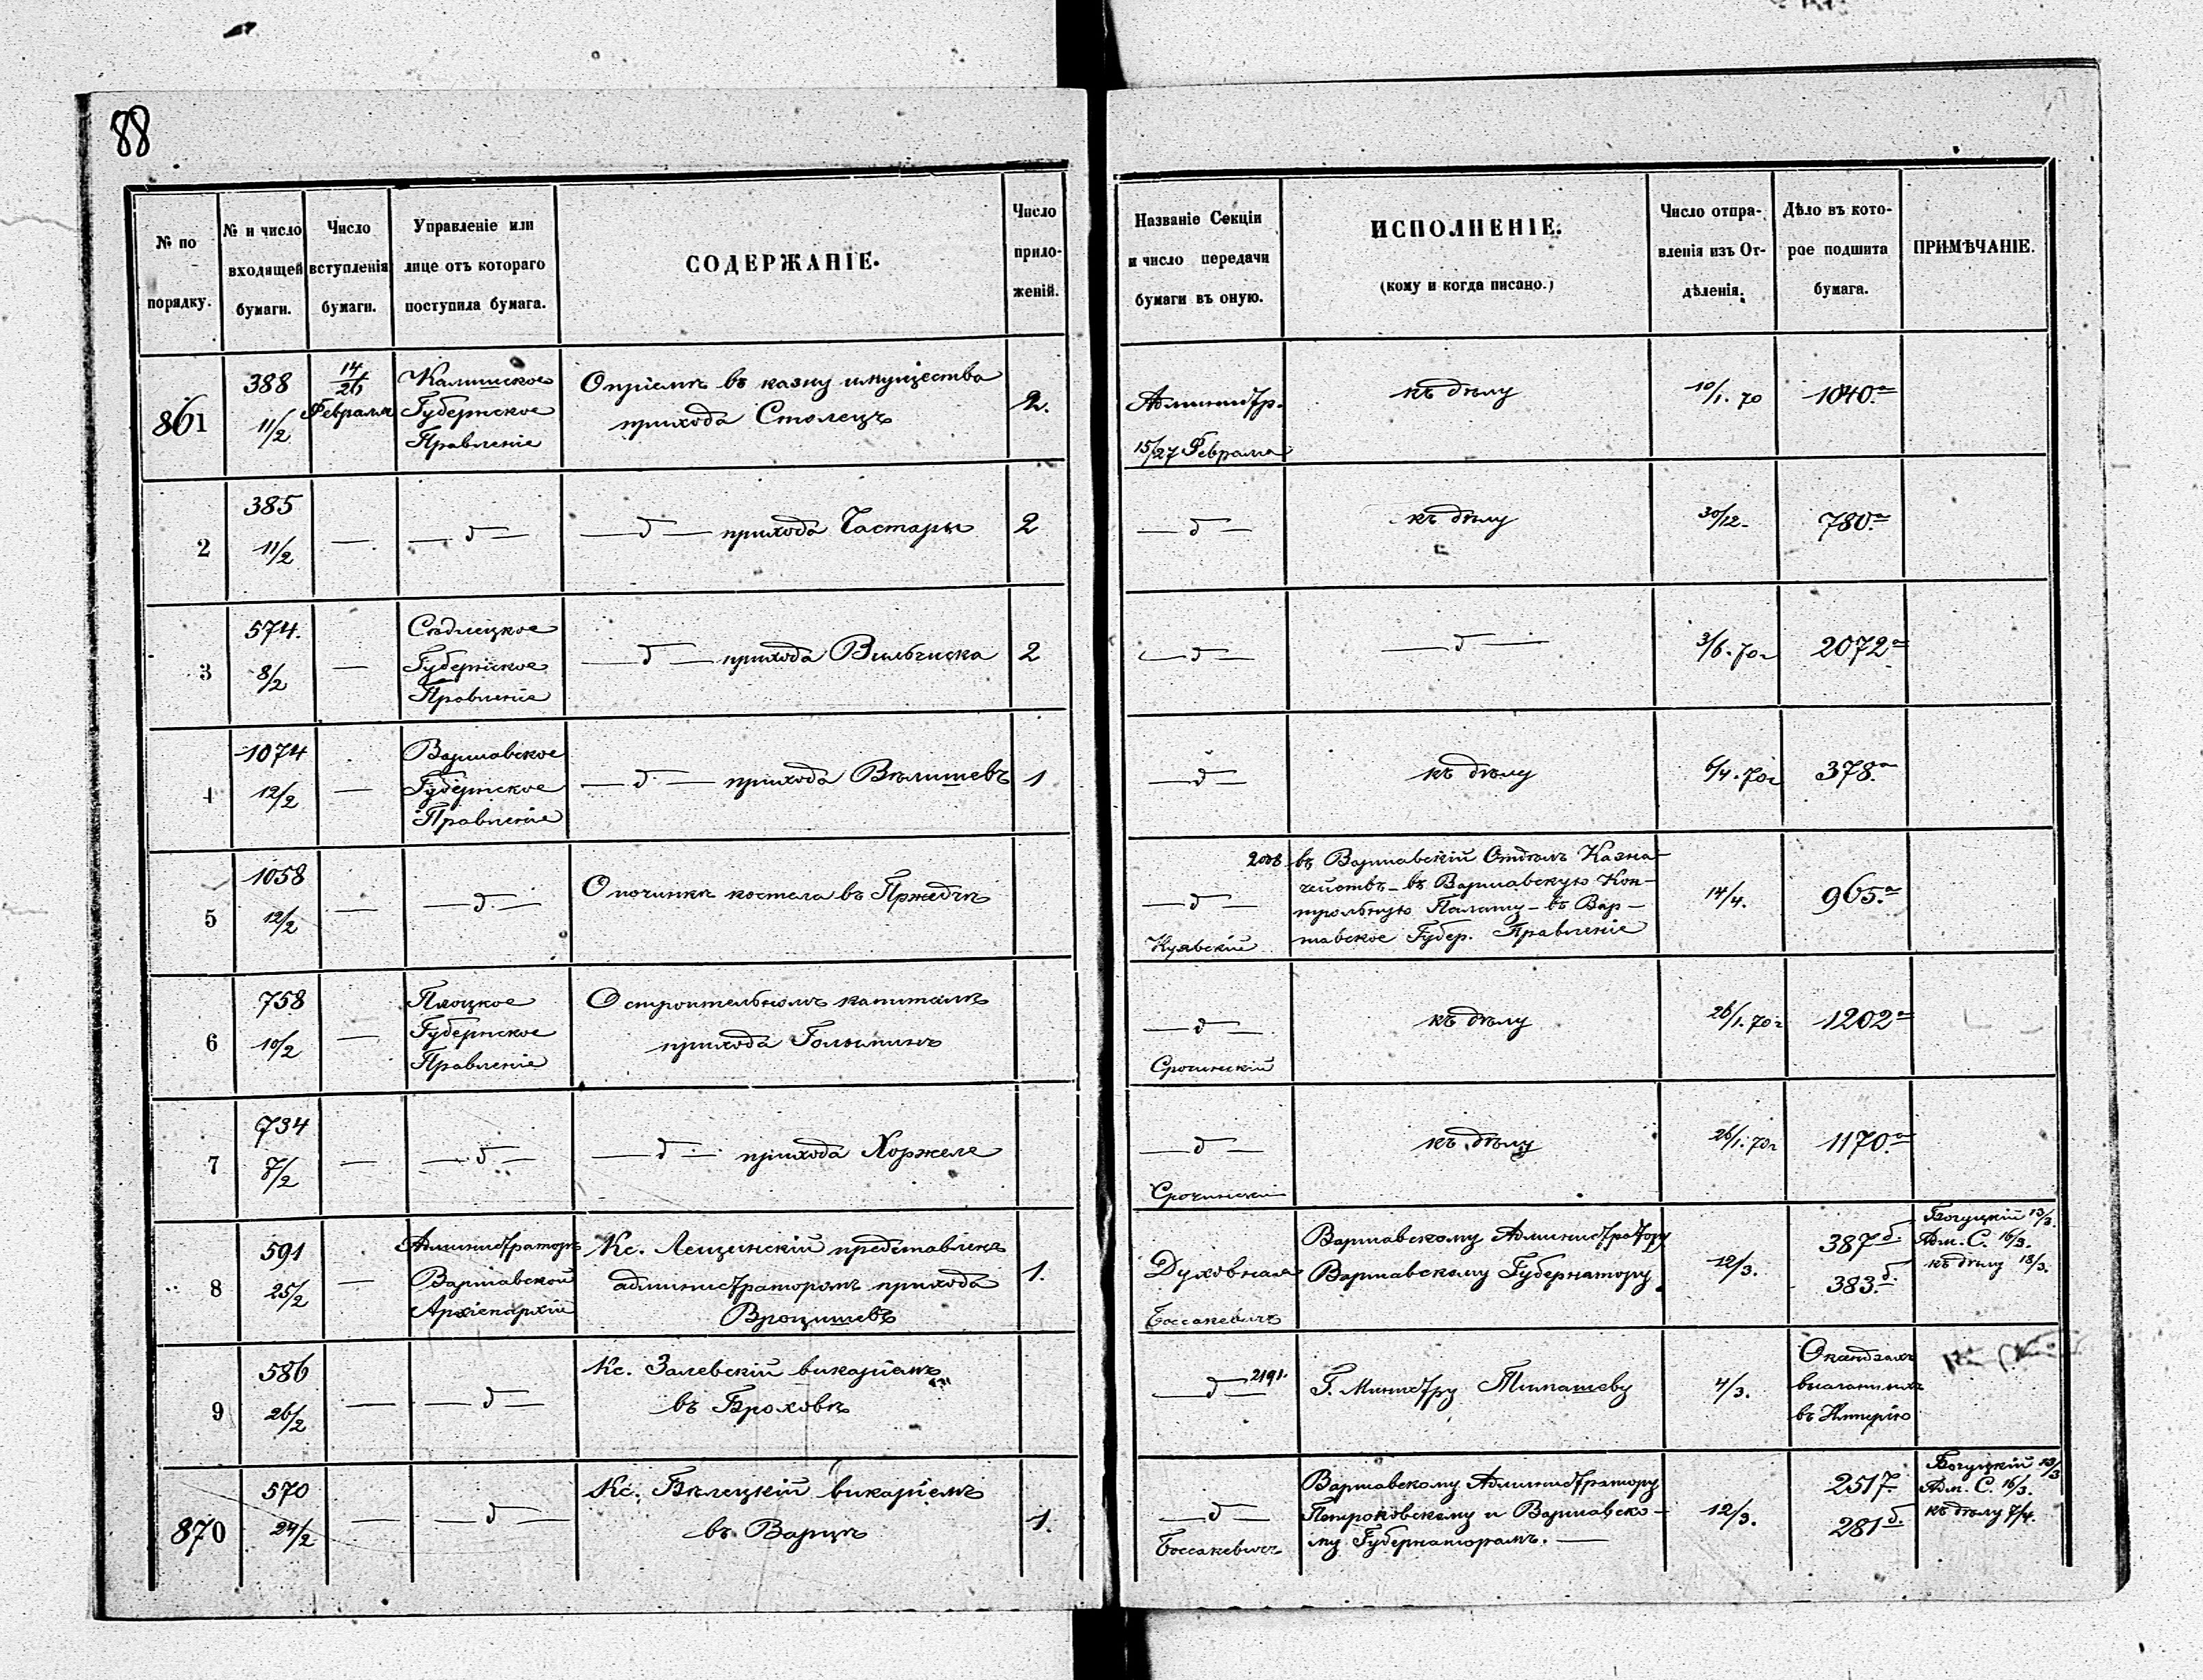 88
№ по порядку.
№ и число входящей бумаги.
Число вступленія бумаги.
Управленіе или лице отъ котораго поступила бумага.
СОДЕРЖАНІЕ.
Число приложеній.
Названіе Секціи и число передачи бумаги въ оную.
ИСПОЛНЕНІЕ.
(кому и когда писано.)
Число отправленія изъ Отдѣленія.
Дѣло въ которое подшита бумага.
ПРИМѢЧАНІЕ.
861
388
11/2
14/26
Февраля
Калишское
Губернское
Правленіе
О пріемѣ въ казну имущества
прихода Столецъ
2.
Администр.
15/27 Февраля
къ дѣлу
10/1. 70
1040.а
2
385
11/2
—
— д —
— д — прихода Частары
2
— д —
къ дѣлу
30/12.
780.а
3
574.
8/2
—
Сѣдлецкое
Губернское
Правленіе
— д — прихода Вильчиска
2
— д —
— д —
3/6. 70г
2072а
4
1074
12/2
—
Варшавское
Губернское
Правленіе
— д — прихода Вѣлишевъ
1
— д —
къ дѣлу
6/4. 70г
378.а
5
1058
12/2
—
— д. —
О починкѣ костела въ Пржедчѣ
— д —
Куявскій
въ Варшавскій Отдѣлъ Казна-
чействъ – въ Варшавскую Кон-
трольную Палату – въ Вар-
шавское Губер. Правленіе
14/4.
965.а
6
758
10/2
—
Плоцкое
Губернское
Правленіе
О строительномъ капиталѣ
прихода Голыминъ
— д —
Срочинскій
къ дѣлу
26/1. 70г
1202а
7
734
7/2
—
— д —
— д — прихода Хоржеле
— д —
Срочинскій
къ дѣлу
26/1. 70г
1170.а
8
591
25/2
—
Администраторъ
Варшавской
Архіепархіи
Кс. Лещинскій представленъ
администраторомъ прихода
Вроцишевъ
1.
Духовная
Боссакевичъ
Варшавскому Администратору
Варшавскому Губернатору.
12/3.
387б.
383.б.
Богуцкій 13/3.
Адм. С. 16/3.
къ дѣлу 18/3.
9
586
26/2
—
— д —
Кс. Залевскій викаріемъ
въ Броховѣ
— д — 2191.
Г. Министру Тимашеву
4/3.
О ксендзахъ
высланныхъ
въ Имперію
870
570
24/2
—
— д —
Кс. Бѣлецкій викаріемъ
въ Варцѣ
1.
— д —
Боссакевичъ
Варшавскому Администратору
Петроковскому и Варшавско-
му Губернаторамъ. —
12/3.
2517.
281б.
Богуцкій 13/3
Адм. С. 16/3.
къ дѣлу 7/4.